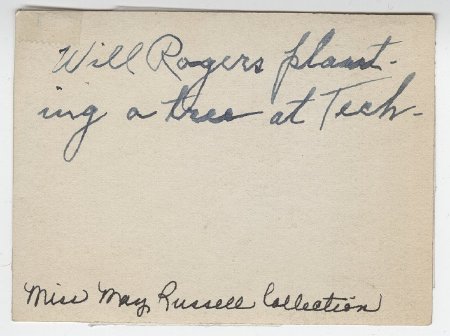 Will Rogers plant-
ing a tree at Tech-
Miss May Russell Collection